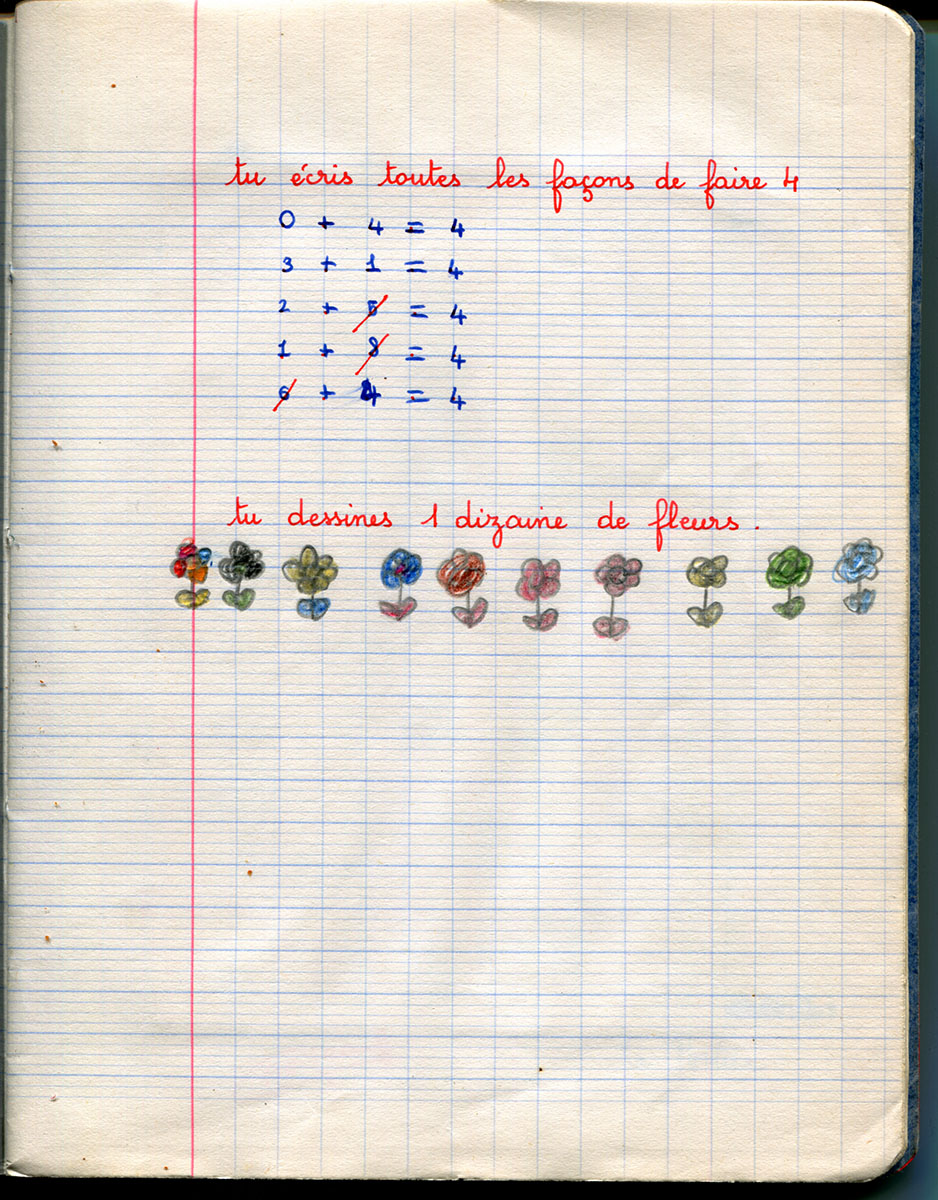 tu écris toutes les façons de faire 4
0 + 4 = 4
3 + 1 = 4
2 + 5 = 4
1 + 8 = 4
6 + 4 = 4
tu dessines 1 dizaine de fleurs.